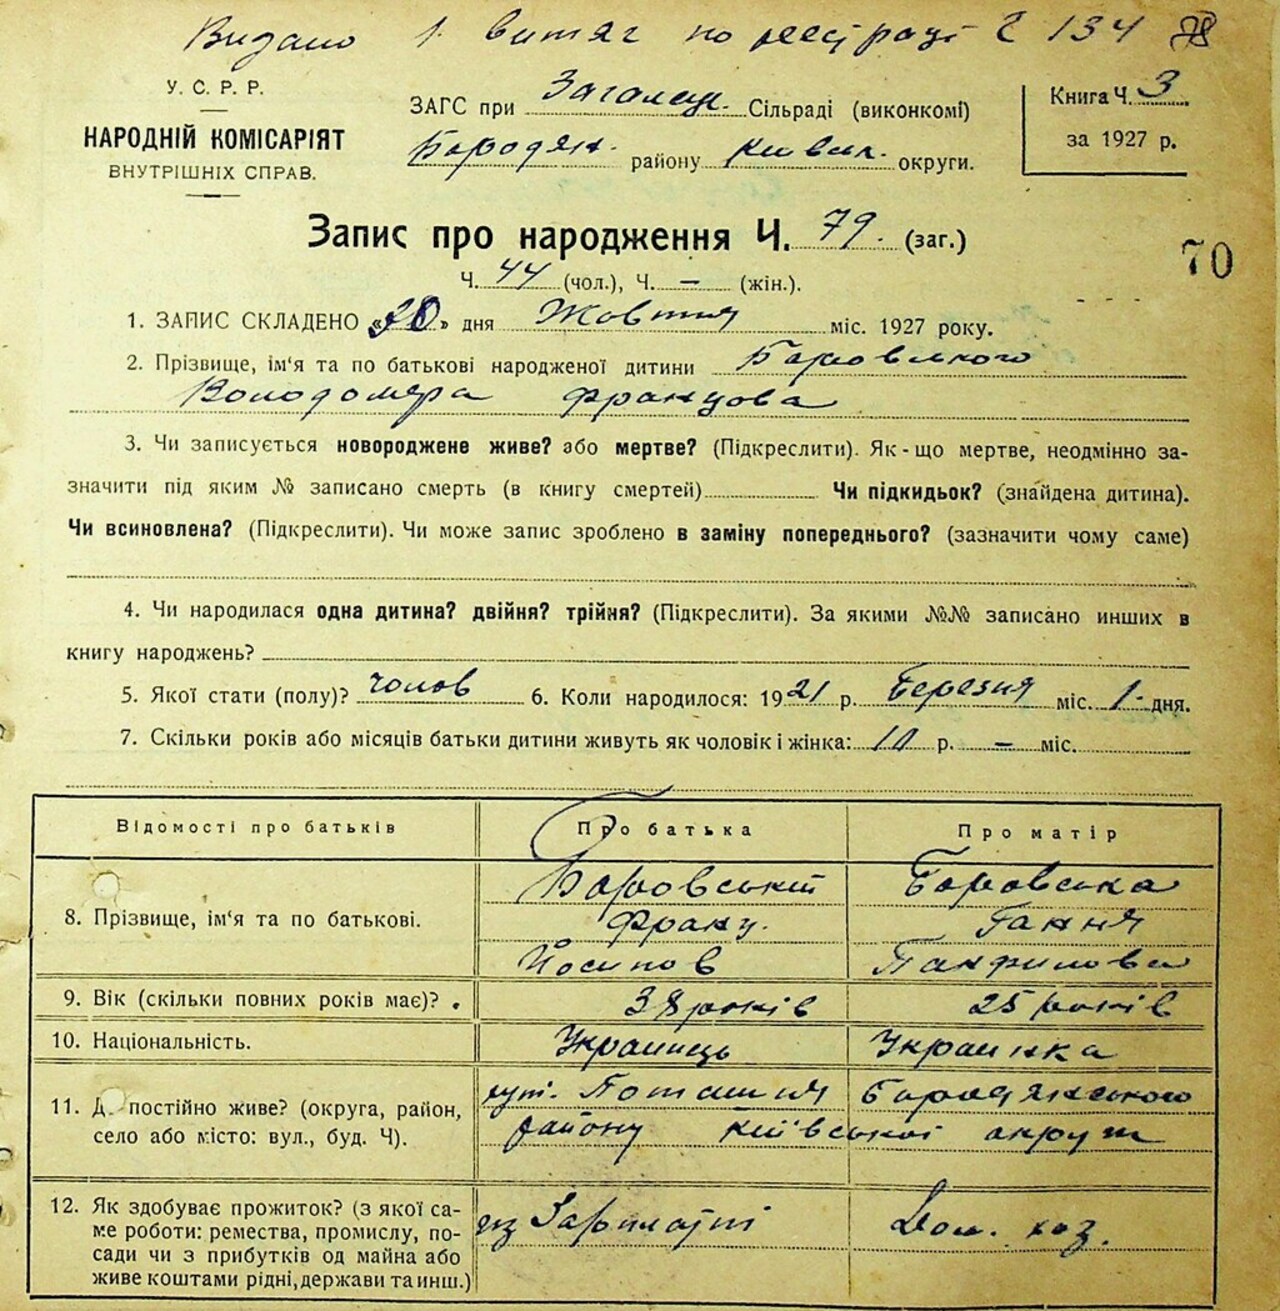 Видано 1 витяг по реєстрації Ч 134
У. С. Р. Р.
НАРОДНІЙ КОМІСАРІЯТ
ВНУТРІШНІХ СПРАВ.
ЗАГС при Загалец. Сільраді (виконкомі)
Бородян. району Київськ. округи.
Книга Ч. 3
за 1927 р.
Запис про народження Ч. 79. (заг.)
70
Ч. 44 (чол.), Ч. — (жін.).
1. ЗАПИС СКЛАДЕНО «20» дня Жовтня міс. 1927 року.
2. Прізвище, ім‘я та по батькові народженої дитини Боровського
Володомера Францова
3. Чи записується новороджене живе? або мертве? (Підкреслити). Як-що мертве, неодмінно за-
значити під яким № записано смерть (в книгу смертей) Чи підкидьок? (знайдена дитина).
Чи всиновлена? (Підкреслити). Чи може запис зроблено в заміну попереднього? (зазначити чому саме)
4. Чи народилася одна дитина? двійня? трійня? (Підкреслити). За якими №№ записано инших в
книгу народжень?
5. Якої стати (полу)? чолов 6. Коли народилося: 1921 р. Березня міс. 1 дня.
7. Скільки років або місяців батьки дитини живуть як чоловік і жінка: 10 р. — міс.
Відомості про батьків Про батька Про матір
8. Прізвище, ім‘я та по батькові.
Боровський Боровська
Франц. Гання
Йосипов Панфилова
9. Вік (скільки повних років має)? 38 років 25 років
10. Національність. Украинець Украинка
11. Де постійно живе? (округа, район,
село або місто: вул., буд. Ч).
хут. Поташня Бородянського
району Київської округи
12. Як здобуває прожиток? (з якої са-
ме роботи: ремества, промислу, по-
сади чи з прибутків од майна або
живе коштами рідні, держави та инш.)
из Зарплатні Дом. хоз.